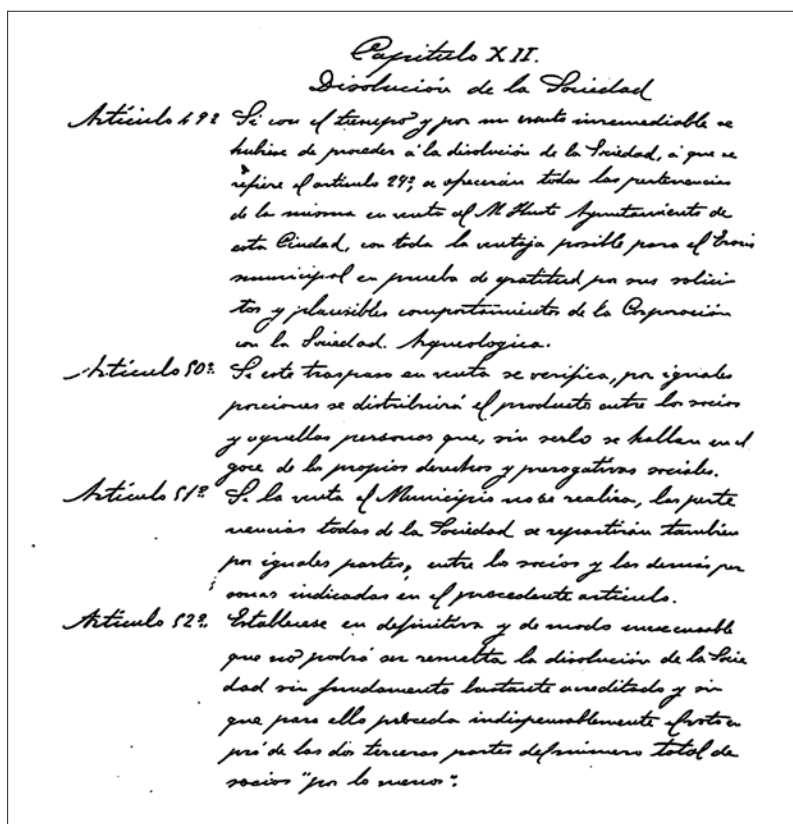 Capitulo XII.
Disolución de la Sociedad
Artículo 49º Si con el tiempo y por un evento irremediable se
hubiese de proceder á la disolución de la Sociedad, á que se
refiere el artículo 24º, se ofrecerán todas las pertenencias
de la misma en venta al M. Ilustre Ayuntamiento de
esta Ciudad, con toda la ventaja posible para el Erario
municipal en prueba de gratitud por sus solici
tos y plausibles comportamientos de la Corporación
con la Sociedad Arqueologica.
Artículo 50º. Si este traspaso en venta se verifica, por iguales
porciones se distribuirá el producto entre los socios
y aquellas personas que, sin serlo se hallan en el
goce de los propios derechos y prerogativas sociales.
Artículo 51º Si la venta al Municipio no se realiza, las perte
nencias todas de la Sociedad se repartirán tambien
por iguales partes, entre los socios y las demás per
sonas indicadas en el precedente artículo.
Artículo 52º. Establecese en definitiva y de modo inexcusable
que no podrá ser resuelta la disolución de la Socie
dad sin fundamento bastante acreditado y sin
que para ello preceda indispensablemente el voto en
pró de las dos terceras partes del número total de
socios "por lo menos".